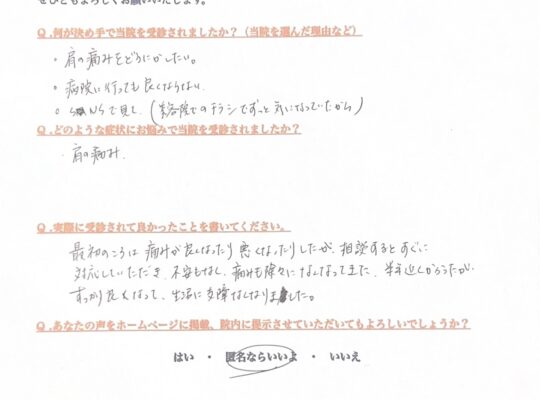 ぜひともよろしくお願いいたします。
Q.何が決め手で当院を受診されましたか？（当院を選んだ理由など）
・肩の痛みをどうにかしたい。
・病院に行っても良くならない
・SNSで見て、(美容院でのチラシでずっと気になっていたから)
Q.どのような症状にお悩みで当院を受診されましたか？
・肩の痛み.
Q.実際に受診されて良かったことを書いてください。
最初のころは痛みが良くなったり悪くなったりしたが、相談するとすぐに
対応していただき、不安もなく、痛みも徐々になくなってきた、半年近くかかったが、
すっかり良くなって、生活に支障なくなりました。
Q.あなたの声をホームページに掲載、院内に提示させていただいてもよろしいでしょうか？
はい ・ 匿名ならいいよ ・ いいえ